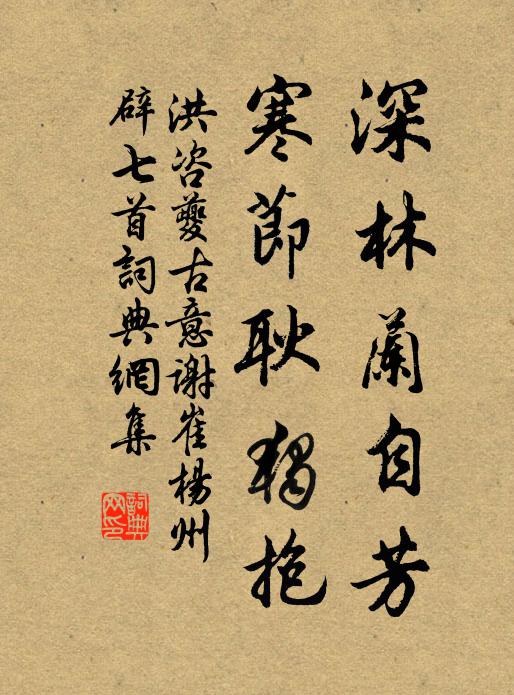 深林蘭自芳
寒節耿獨抱
洪咨夔古意謝崔楊州
辟七首詞典網集
詞典网印